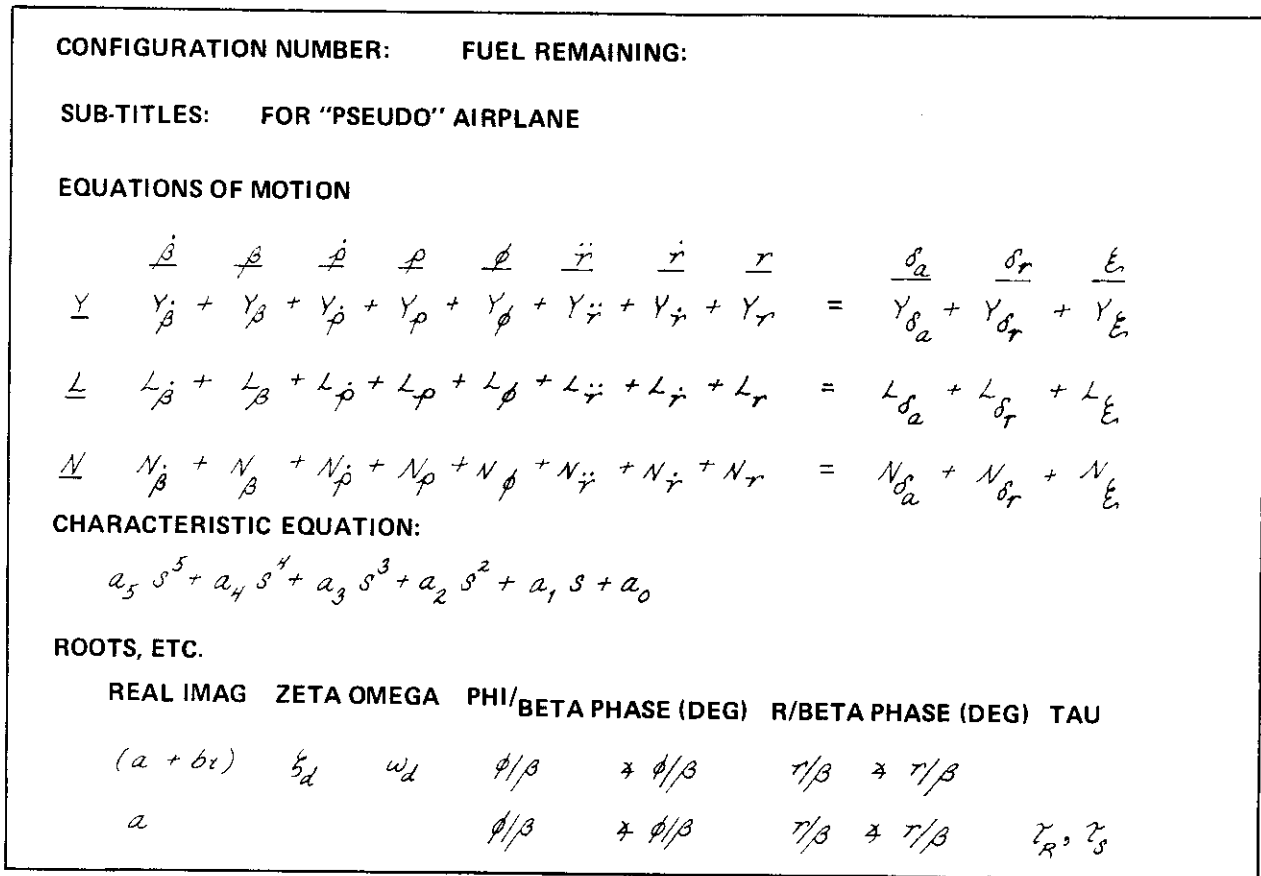 CONFIGURATION NUMBER: FUEL REMAINING:
SUB-TITLES: FOR "PSEUDO" AIRPLANE
EQUATIONS OF MOTION
β̇ β ṗ p φ r̈ ṙ r δ_a δ_r ξ
Y Y_β̇ + Y_β + Y_ṗ + Y_p + Y_φ + Y_r̈ + Y_ṙ + Y_r = Y_δ_a + Y_δ_r + Y_ξ
L L_β̇ + L_β + L_ṗ + L_p + L_φ + L_r̈ + L_ṙ + L_r = L_δ_a + L_δ_r + L_ξ
N N_β̇ + N_β + N_ṗ + N_p + N_φ + N_r̈ + N_ṙ + N_r = N_δ_a + N_δ_r + N_ξ
CHARACTERISTIC EQUATION:
a₅ s⁵ + a₄ s⁴ + a₃ s³ + a₂ s² + a₁ s + a₀
ROOTS, ETC.
REAL IMAG ZETA OMEGA PHI/BETA PHASE (DEG) R/BETA PHASE (DEG) TAU
(a + bi) ζ_d ω_d φ/β ∡ φ/β r/β ∡ r/β
a φ/β ∡ φ/β r/β ∡ r/β τ_R, τ_s